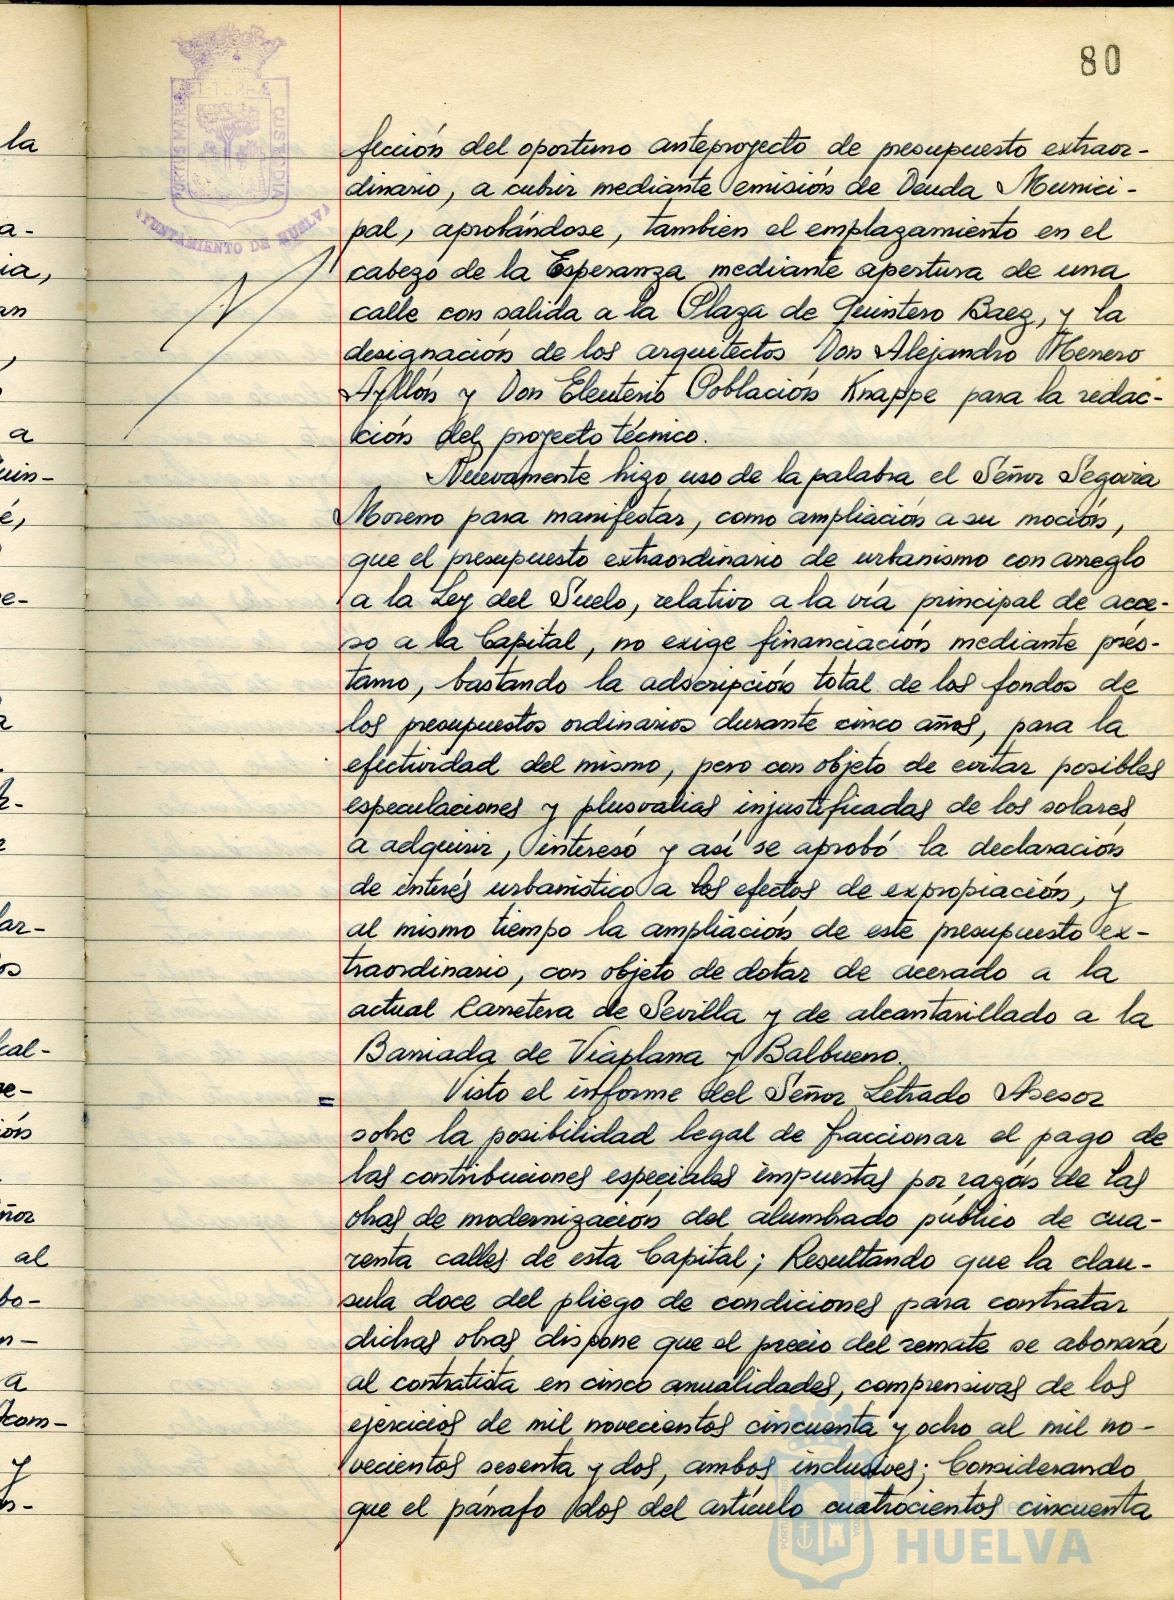 80
PORTUS MARIS ET TERRAE CUSTODIA
AYUNTAMIENTO DE HUELVA
fección del oportuno anteproyecto de presupuesto extraor-
dinario, a cubrir mediante emisión de Deuda Munici-
pal, aprobándose, también el emplazamiento en el
cabezo de la Esperanza mediante apertura de una
calle con salida a la Plaza de Quintero Baez, y la
designación de los arquitectos Don Alejandro Herrero
Ayllón y Don Eleuterio Población Knappe para la redac-
ción del proyecto técnico.
Nuevamente hizo uso de la palabra el Señor Segovia
Moreno para manifestar, como ampliación a su moción,
que el presupuesto extraordinario de urbanismo con arreglo
a la Ley del Suelo, relativo a la vía principal de acce-
so a la Capital, no exige financiación mediante prés-
tamo, bastando la adscripción total de los fondos de
los presupuestos ordinarios durante cinco años, para la
efectividad del mismo, pero con objeto de evitar posibles
especulaciones y plusvalias injustificadas de los solares
a adquirir, interesó y así se aprobó la declaración
de interés urbanístico a los efectos de expropiación, y
al mismo tiempo la ampliación de este presupuesto ex-
traordinario, con objeto de dotar de acerado a la
actual Carretera de Sevilla y de alcantarillado a la
Barriada de Viaplana y Balbueno.
= Visto el informe del Señor Letrado Asesor
sobre la posibilidad legal de fraccionar el pago de
las contribuciones especiales impuestas por razón de las
obras de modernización del alumbrado público de cua-
renta calles de esta Capital; Resultando que la clau-
sula doce del pliego de condiciones para contratar
dichas obras dispone que el precio del remate se abonará
al contratista en cinco anualidades, comprensivas de los
ejercicios de mil novecientos cincuenta y ocho al mil no-
vecientos sesenta y dos, ambos inclusives; Considerando
que el párrafo dos del artículo cuatrocientos cincuenta
HUELVA